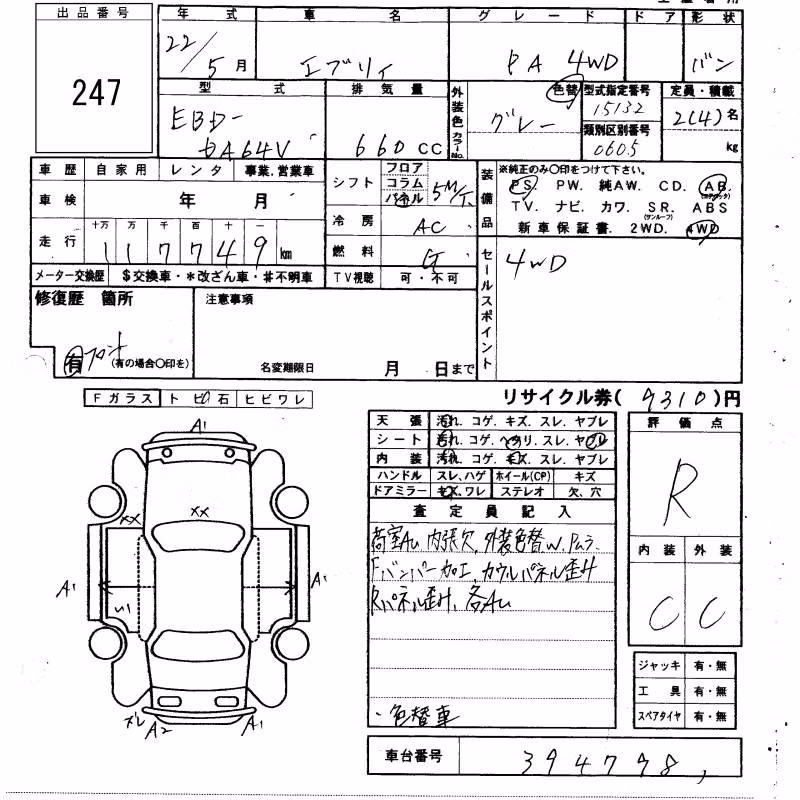 出品番号
247
年式 車名 グレード ドア 形状
22/5月 エブリィ PA 4WD バン
型式 排気量 外装色 カラーNo. 色替 型式指定番号 定員・積載
EBD-DA64V 660CC グレー 15132 2(4)名
類別区別番号
0605 kg
車歴 自家用 レンタ 事業.営業車
車検 年 月
走行 十万 万 千 百 十 一
117749km
メーター交換歴 $交換車・*改ざん車・#不明車
シフト フロア コラム パネル 5M/T
冷房 AC
燃料 G
TV視聴 可・不可
装備品 ※純正のみ〇印をつけて下さい。
PS. PW. 純AW. CD. AB.
TV. ナビ. カワ. SR. ABS
(サンルーフ)
新車保証書. 2WD. 4WD
セールスポイント
4WD
修復歴 箇所 注意事項
有 フロント (有の場合〇印を)
名変期限日 月 日まで
Fガラス トビ石 ヒビワレ
リサイクル券( 9310)円
天張 汚れ. コゲ. キズ. スレ. ヤブレ
シート 汚れ. コゲ. ヘタリ. スレ. ヤブレ
内装 汚れ. コゲ. キズ. スレ. ヤブレ
ハンドル スレ.ハゲ ホイール(CP) キズ
ドアミラー キズ.ワレ ステレオ 欠.穴
査定員記入
荷室AU 内張欠. 外装色替W. Pムラ.
Fバンパー加工. カウルパネル歪ミ
Rパネル歪ミ. 各AU
・色替車
評価点
R
内装 外装
C C
ジャッキ 有・無
工具 有・無
スペアタイヤ 有・無
A1
XX XX
A1 A1
A2 A1
車台番号 394798